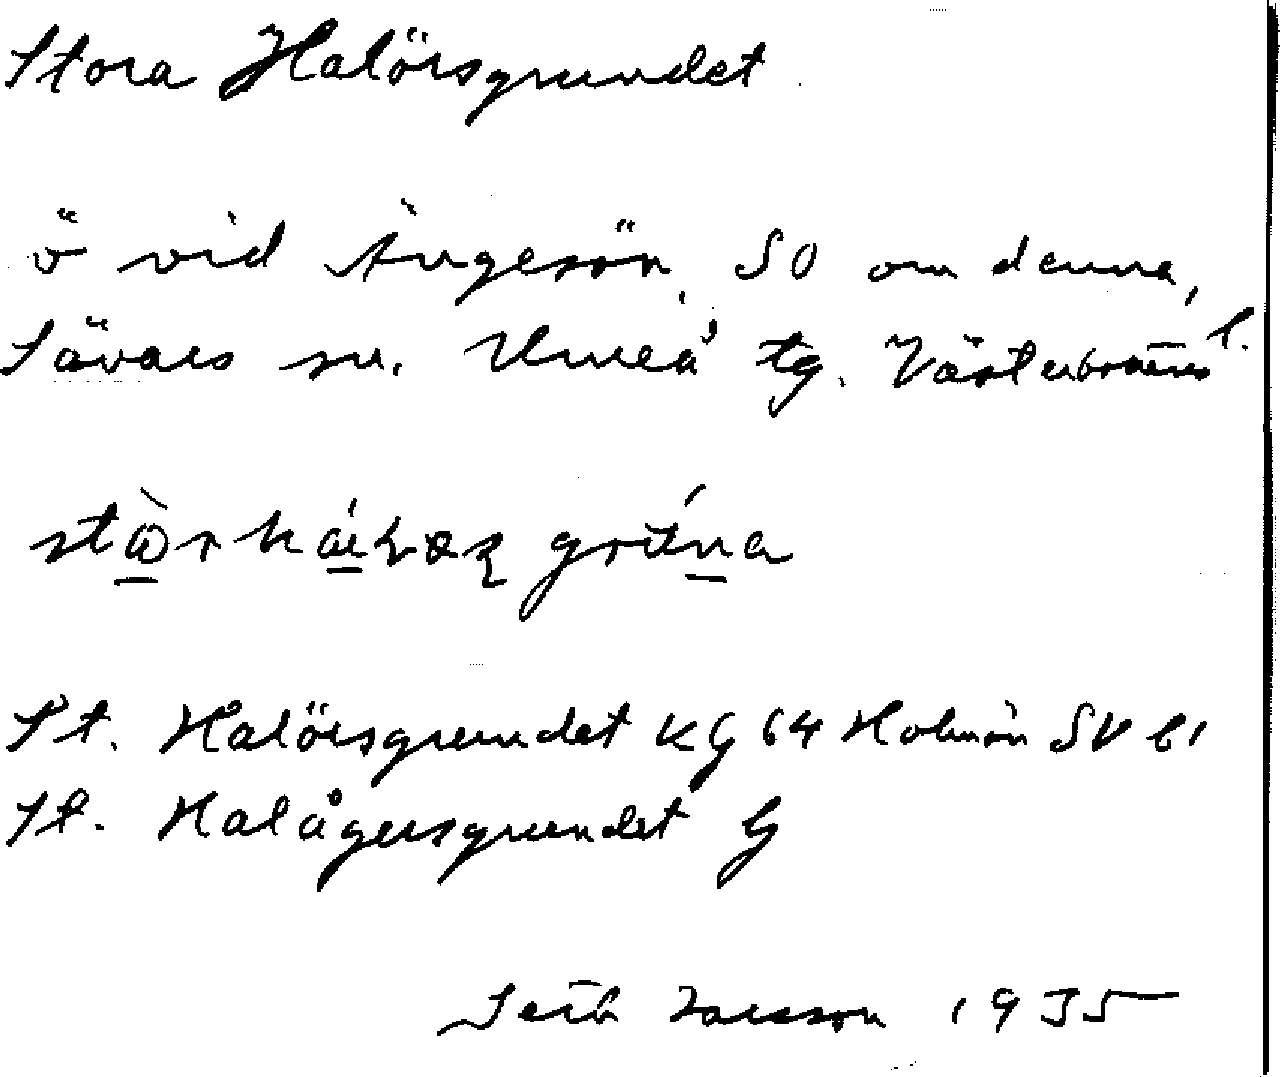 Stora Halörsgrundet
ö vid Ängesön, SO om denna,
Sävars sn. Umeå tg. Västerbottens l.
St. Halörsgrundet KG 64 Holmön SV b1
St. Halågersgrundet G
Seth Larsson 1935